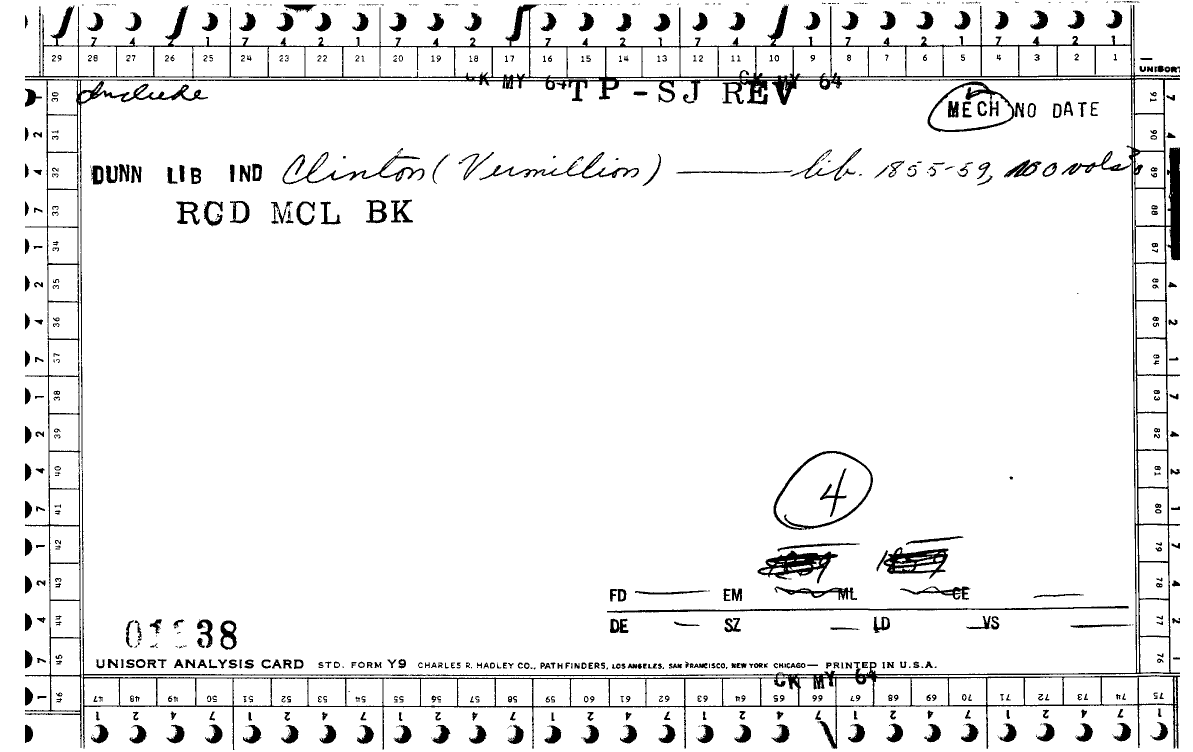 7 4 2 1 7 4 2 1 7 4 2 1 7 4 2 1 7 4 2 1 7 4 2 1 7 4 2 1
29 28 27 26 25 24 23 22 21 20 19 18 17 16 15 14 13 12 11 10 9 8 7 6 5 4 3 2 1
UNISORT
CK MY 64 TP-SJ REV CK MY 64
Include
MECH NO DATE
DUNN LIB IND Clinton (Vermillion) —— lib. 1855-59, vols
RGD MCL BK
4
1859 1859
FD EM ML CE
DE SZ LD VS
38
UNISORT ANALYSIS CARD STD. FORM Y9 CHARLES R. HADLEY CO., PATHFINDERS, LOS ANGELES, SAN FRANCISCO, NEW YORK CHICAGO— PRINTED IN U.S.A.
CK MY 64
30 31 32 33 34 35 36 37 38 39 40 41 42 43 44 45 46
47 48 49 50 51 52 53 54 55 56 57 58 59 60 61 62 63 64 65 66 67 68 69 70 71 72 73 74 75
76 77 78 79 80 81 82 83 84 85 86 87 88 89 90 91